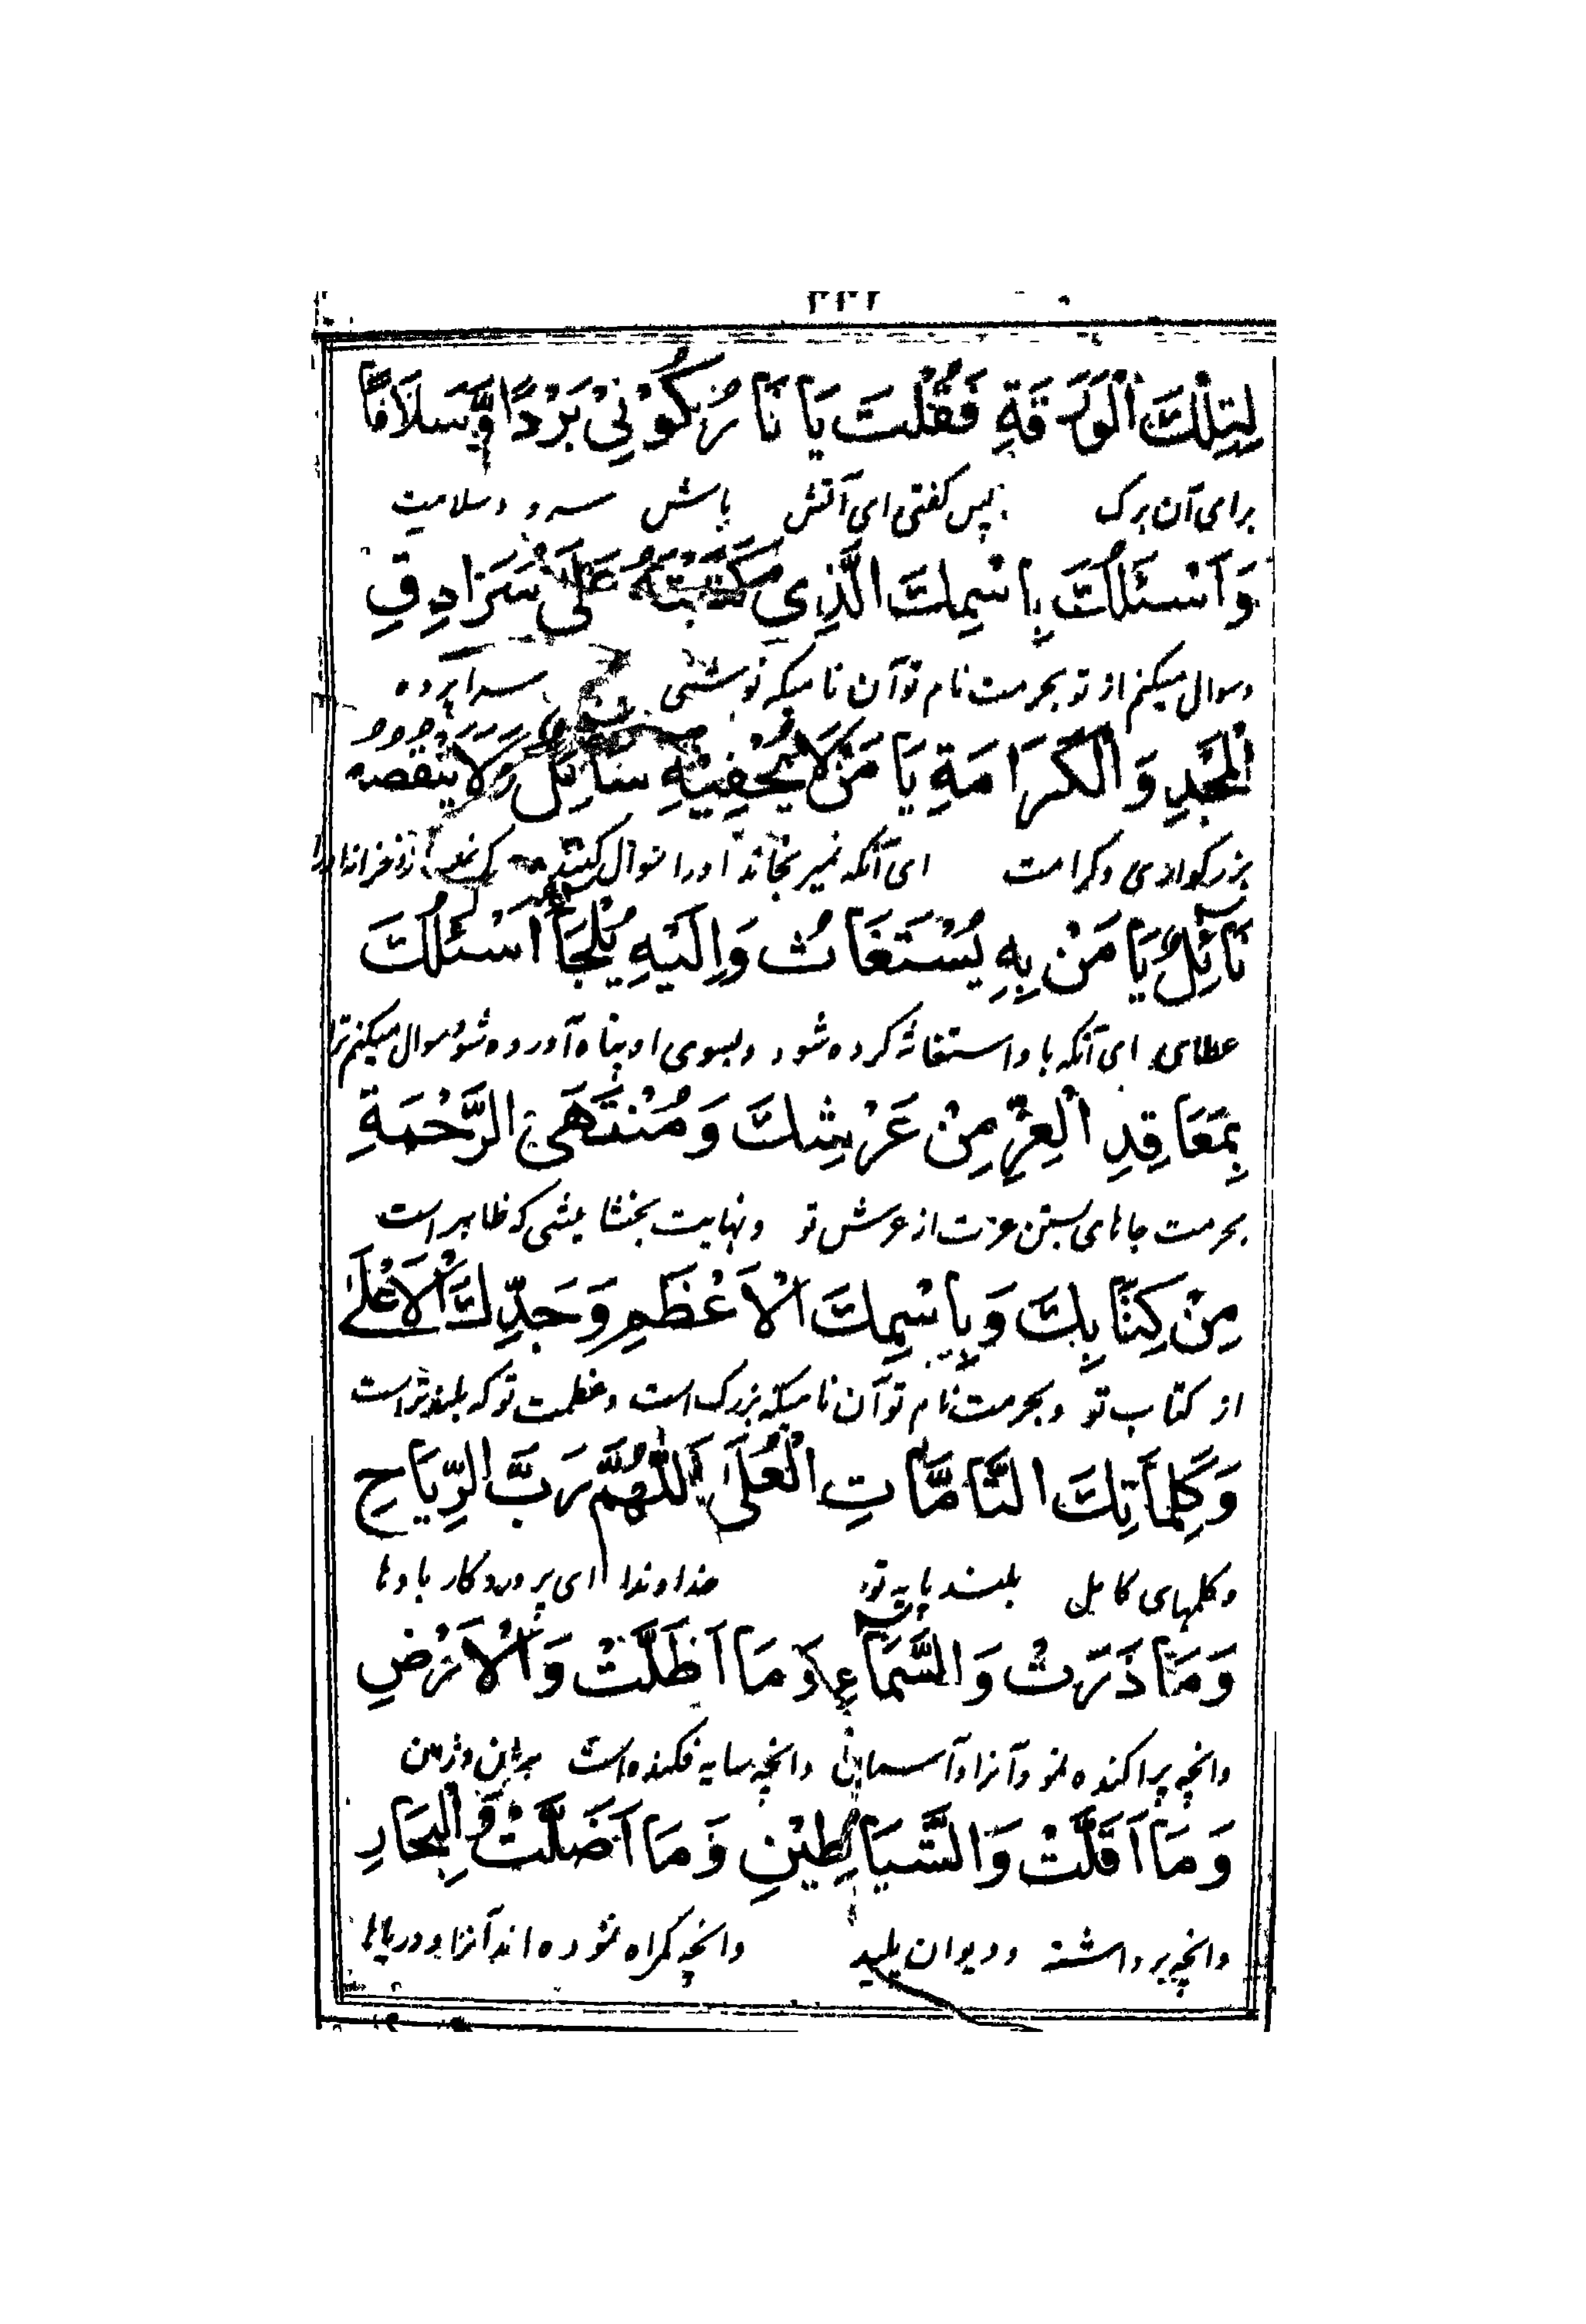 لِتِلْكَ الْوَرَقَةِ فَقُلْتَ يَا نَارُ كُوْنِيْ بَرْدًا وَّسَلَامًا
برای آن برک پس کفتی ای آتش باش سرد و سلامیت
وَاَسْئَلُكَ بِاسْمِكَ الَّذِي كَتَبْتَهُ عَلَى سُرَادِقِ
وسوال میکنم از تو بحرمت نام تو آن نامیکه نوشتی سراپرده
الْمَجْدِ وَالْكَرَامَةِ يَا مَنْ لَا يُحْفِيْهِ سَائِلٌ وَلَا يَنْقُصُهُ
بزرکواری وکرامت ای آنکه نمیرنجاند اورا سوال کننده
نَائِلٌ يَا مَنْ بِهِ يُسْتَغَاثُ وَاِلَيْهِ يُلْجَأُ اَسْئَلُكَ
عطای ای آنکه باو استغاثه کرده شود وبسوی او پناه آورده شود سوال میکنم ترا
بِمَعَاقِدِ الْعِزِّ مِنْ عَرْشِكَ وَمُنْتَهَى الرَّحْمَةِ
بحرمت جاهای بستن عزت از عرش تو ونهایت بخشایشی که ظاهر است
مِنْ كِتَابِكَ وَبِاسْمِكَ الْاَعْظَمِ وَجَدِّكَ الْاَعْلَى
از کتاب تو وبحرمت نام تو آن نامیکه بزرک است وعظمت تو که بلندتراست
وَكَلِمَاتِكَ التَّامَّاتِ الْعُلَى اَللّٰهُمَّ رَبَّ الرِّيَاحِ
وکلمهای کامل بلند پایه تو خداوندا ای پروردکار بادها
وَمَا ذَرَتْ وَالسَّمَاءِ وَمَا اَظَلَّتْ وَالْاَرْضِ
وانچه پراکنده نمود آنرا وآسمان وانچه سایه فکنده است برین وزمین
وَمَا اَقَلَّتْ وَالشَّيَاطِيْنِ وَمَا اَضَلَّتْ وَالْبِحَارِ
وانچه برداشته ودیوان پلید وانچه کمراه نموده اند آنرا ودریاها